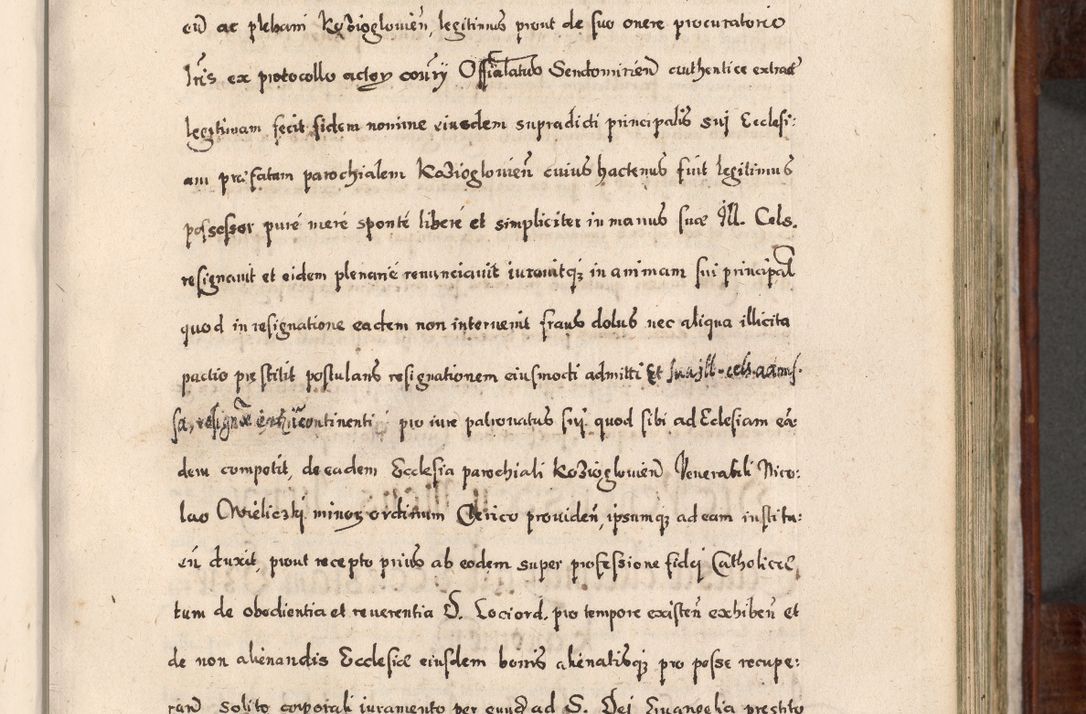 eū ac plebani Kozioglowień, legitimus prout de suo onere procuratorio
Lr̃is ex protocollo actoꝝ cou᷈ry Offi᷈cialatus Sendomirień authentice extract
legitimam fecit fidem nomine eiusdem supradicti principalis sui Ecclesi:
am præfatam parochialem Kozioglowień cuius hactenus fuit legitimus
possessor puré meré sponté liberé et simpliciter in manus suæ Ill. Cels.
resignavit et eidem plenarié renunciavit iuravitqꝫ in animam sui principal
quod in resignatione eadem non intervenit fraus dolus nec aliqua illicita
pactio præstitit postulans resignationem eiusmodi admitti Et sua ill. cels. admis.
sa, resignãe incontinenti pro iure patronatus sui quod sibi ad Eclesiam eã
dem competit, de eadem Ecclesia parochiali Kozioglowień Venerabili Nico:
lao Wieliczki minoꝝ ordinum Clerico provideń, ipsumqꝫ ad eam institu:
eń duxit, prout recepto prius ab eodem super professione fidej Catholicæ
tum de obedientia et reverentia D. Lociord. pro tempore existeń exhibeń et
de non alienandis Ecclesiæ eiusdem bonis alienatisqꝫ pro posse recupe:
rań solito corporali iuramento per eund ad S. Dei Evangelia prestito